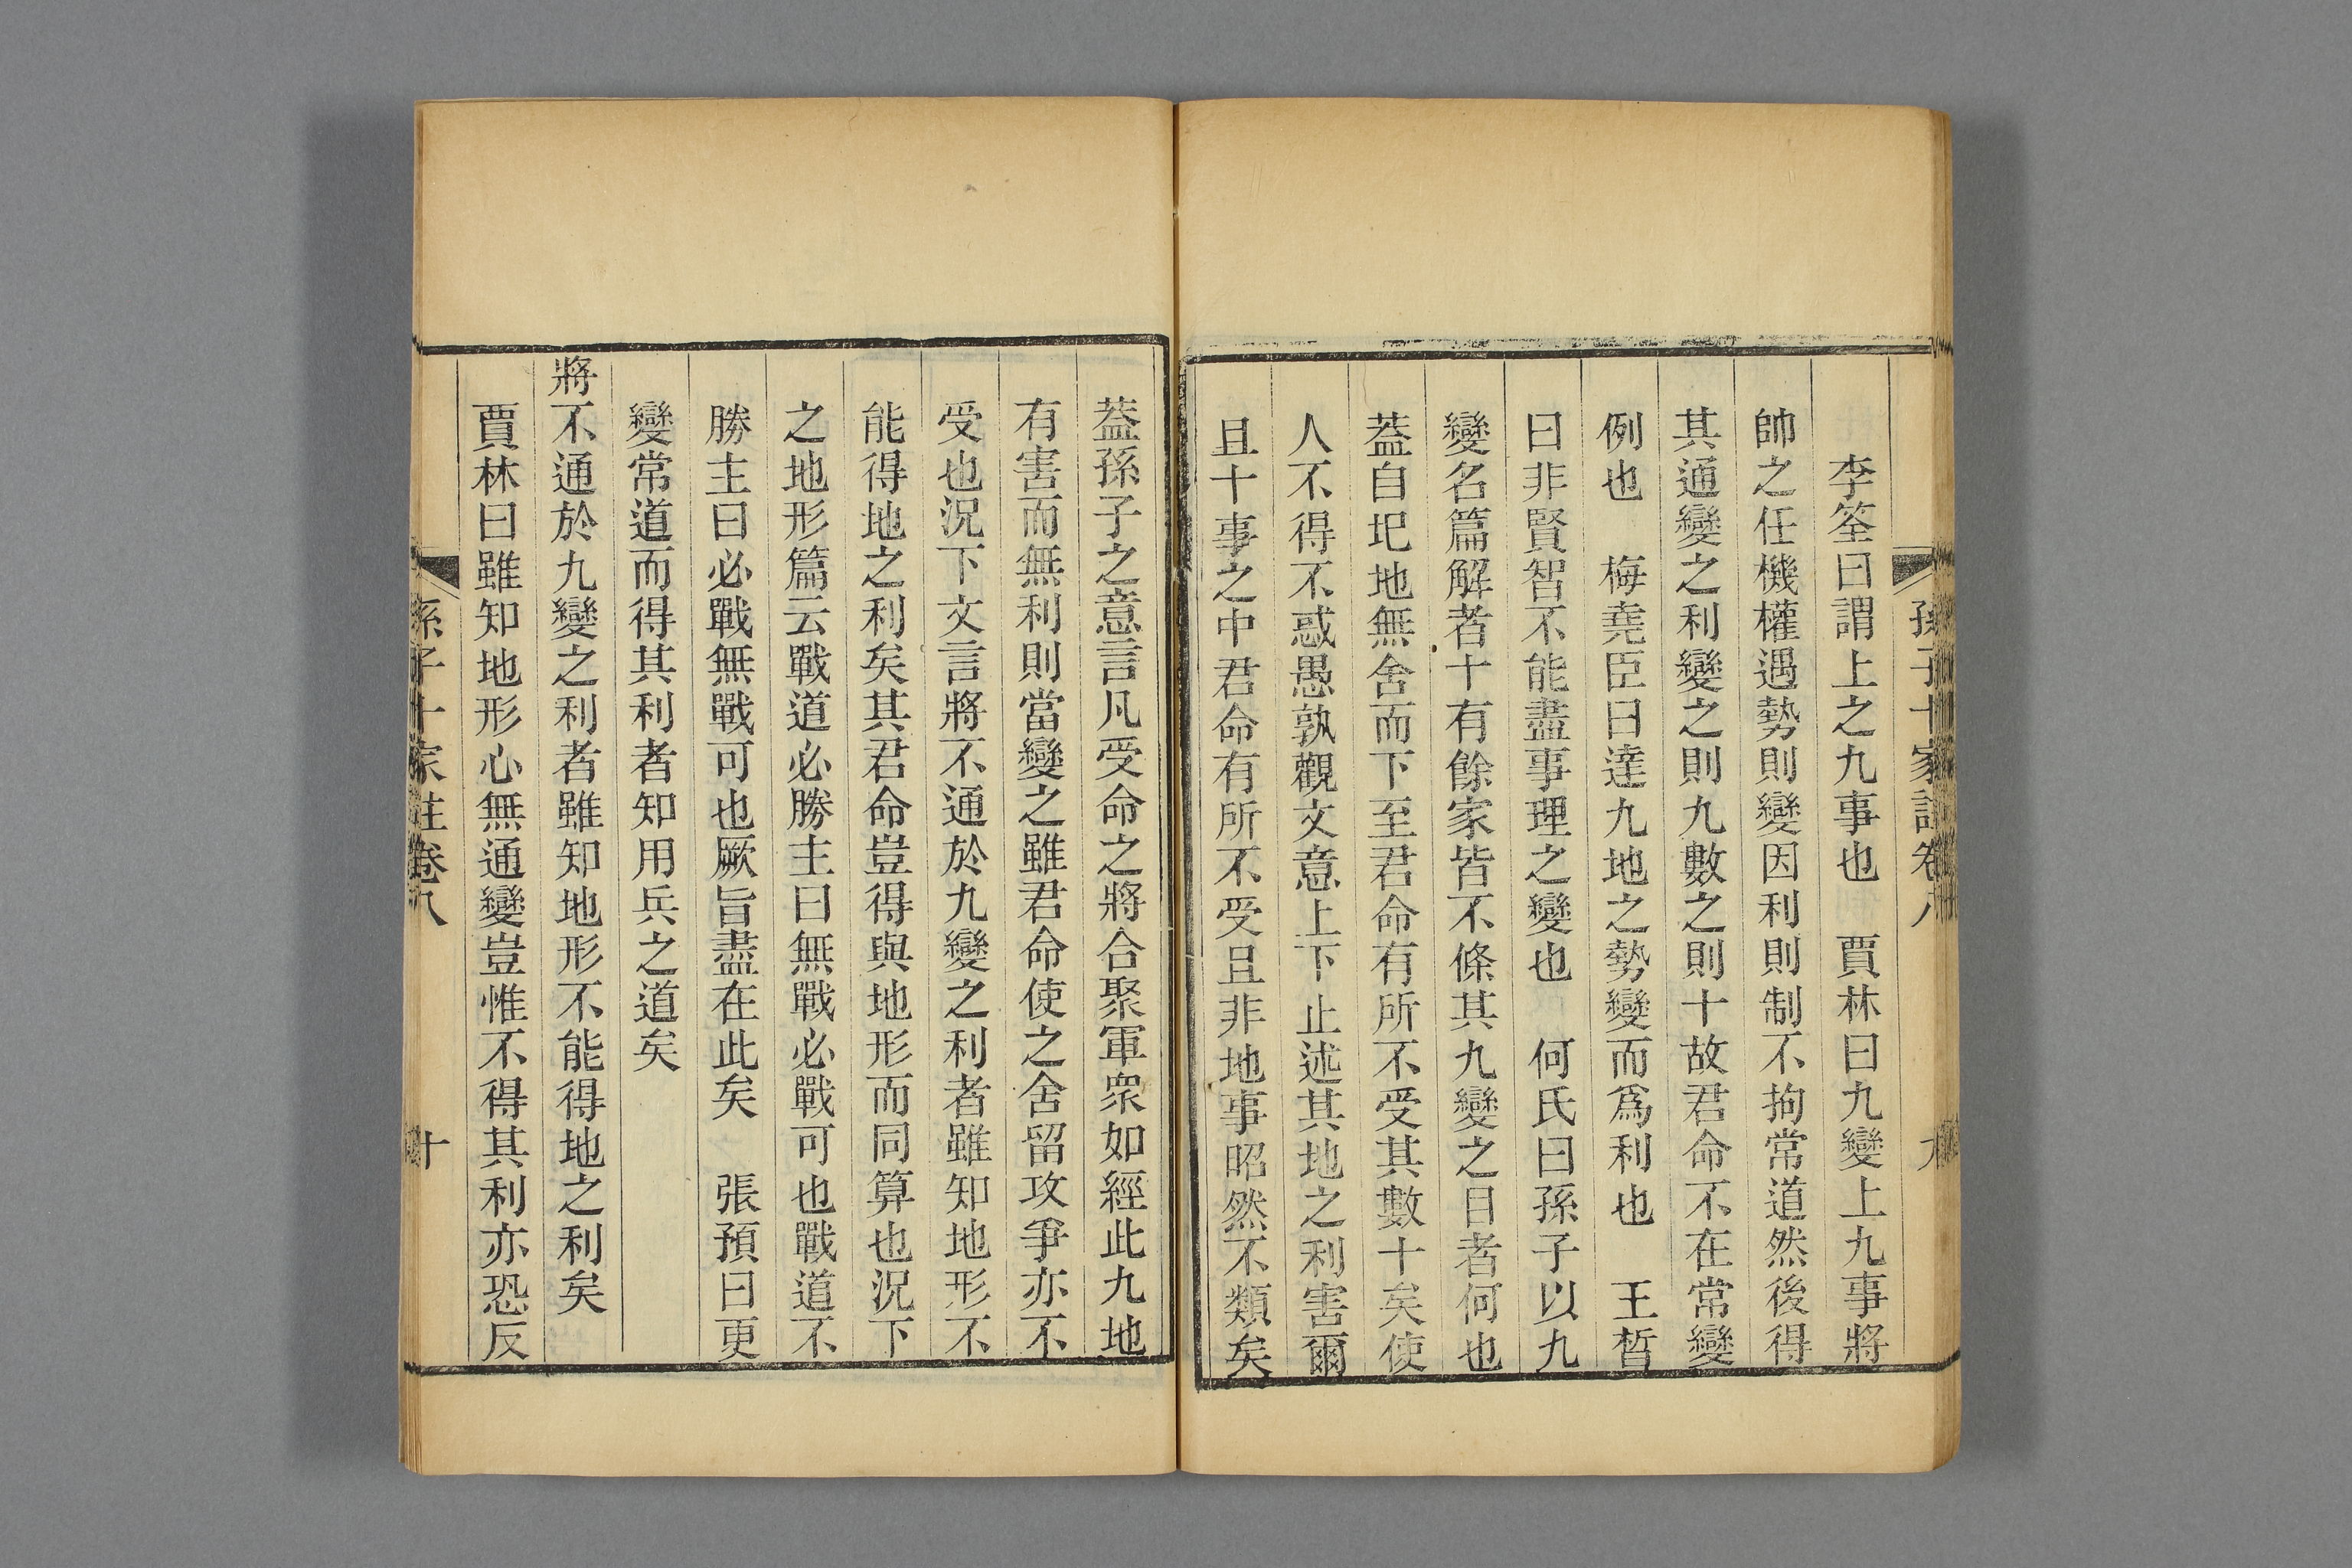 孫子十家註卷八 九
李筌曰謂上之九事也 賈林曰九變上九事將
帥之任機權遇勢則變因利則制不拘常道然後得
其通變之利變之則九數之則十故君命不在常變
例也 梅堯臣曰達九地之勢變而爲利也 王晳
曰非賢智不能盡事理之變也 何氏曰孫子以九
變名篇解者十有餘家皆不條其九變之目者何也
葢自圯地無舍而下至君命有所不受其數十矣使
人不得不惑愚孰觀文意上下止述其地之利害爾
且十事之中君命有所不受且非地事昭然不類矣
葢孫子之意言凡受命之將合聚軍衆如經此九地
有害而無利則當變之雖君命使之舍留攻爭亦不
受也況下文言將不通於九變之利者雖知地形不
能得地之利矣其君命豈得與地形而同算也況下
之地形篇云戰道必勝主曰無戰必戰可也戰道不
勝主曰必戰無戰可也厥旨盡在此矣 張預曰更
變常道而得其利者知用兵之道矣
將不通於九變之利者雖知地形不能得地之利矣
賈林曰雖知地形心無通變豈惟不得其利亦恐反
孫子十家註卷八 十